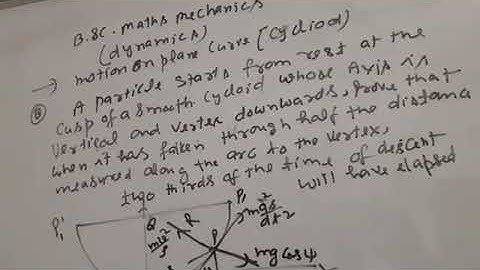 B.SC. maths mechanics
(dynamics)
→ motion on plane curve [cycliod)
⑧ A particle starts from rest at the
cusp of a smooth cycloid whose Axis is
vertical and vertex downwards, prove that
when it has fallen through half the distance
measured along the arc to the vertex,
two thirds of the time of descent
will have elapsed
P₁' Q R P₁ P
mgcosψ